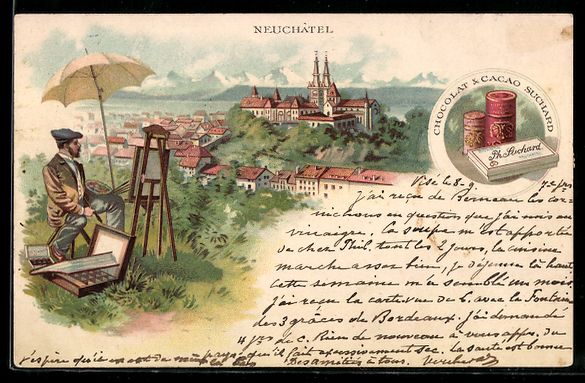 NEUCHÂTEL
CHOCOLAT & CACAO SUCHARD
Ph. Suchard
NEUCHATEL
le 8-9
J'ai reçu de Berneau les cor-
nichons en question que j'ai mis au
vinaigre, la soupe m'est apportée
de chez Phil. tout les 2 jours, la cuisine
marche assez bien, je déjeune là haut
cette semaine m'a semblé un mois
J'ai reçu la carte vue de L. avec la Fontaine
des 3 grâces de Bordeaux. J'ai demandé
4 de c. Rien de nouveau à vous app. du
j'espère qu'il en est de même qu'il fait excessivement sec. La santé est bonne
là bas Des amitiés à tous.